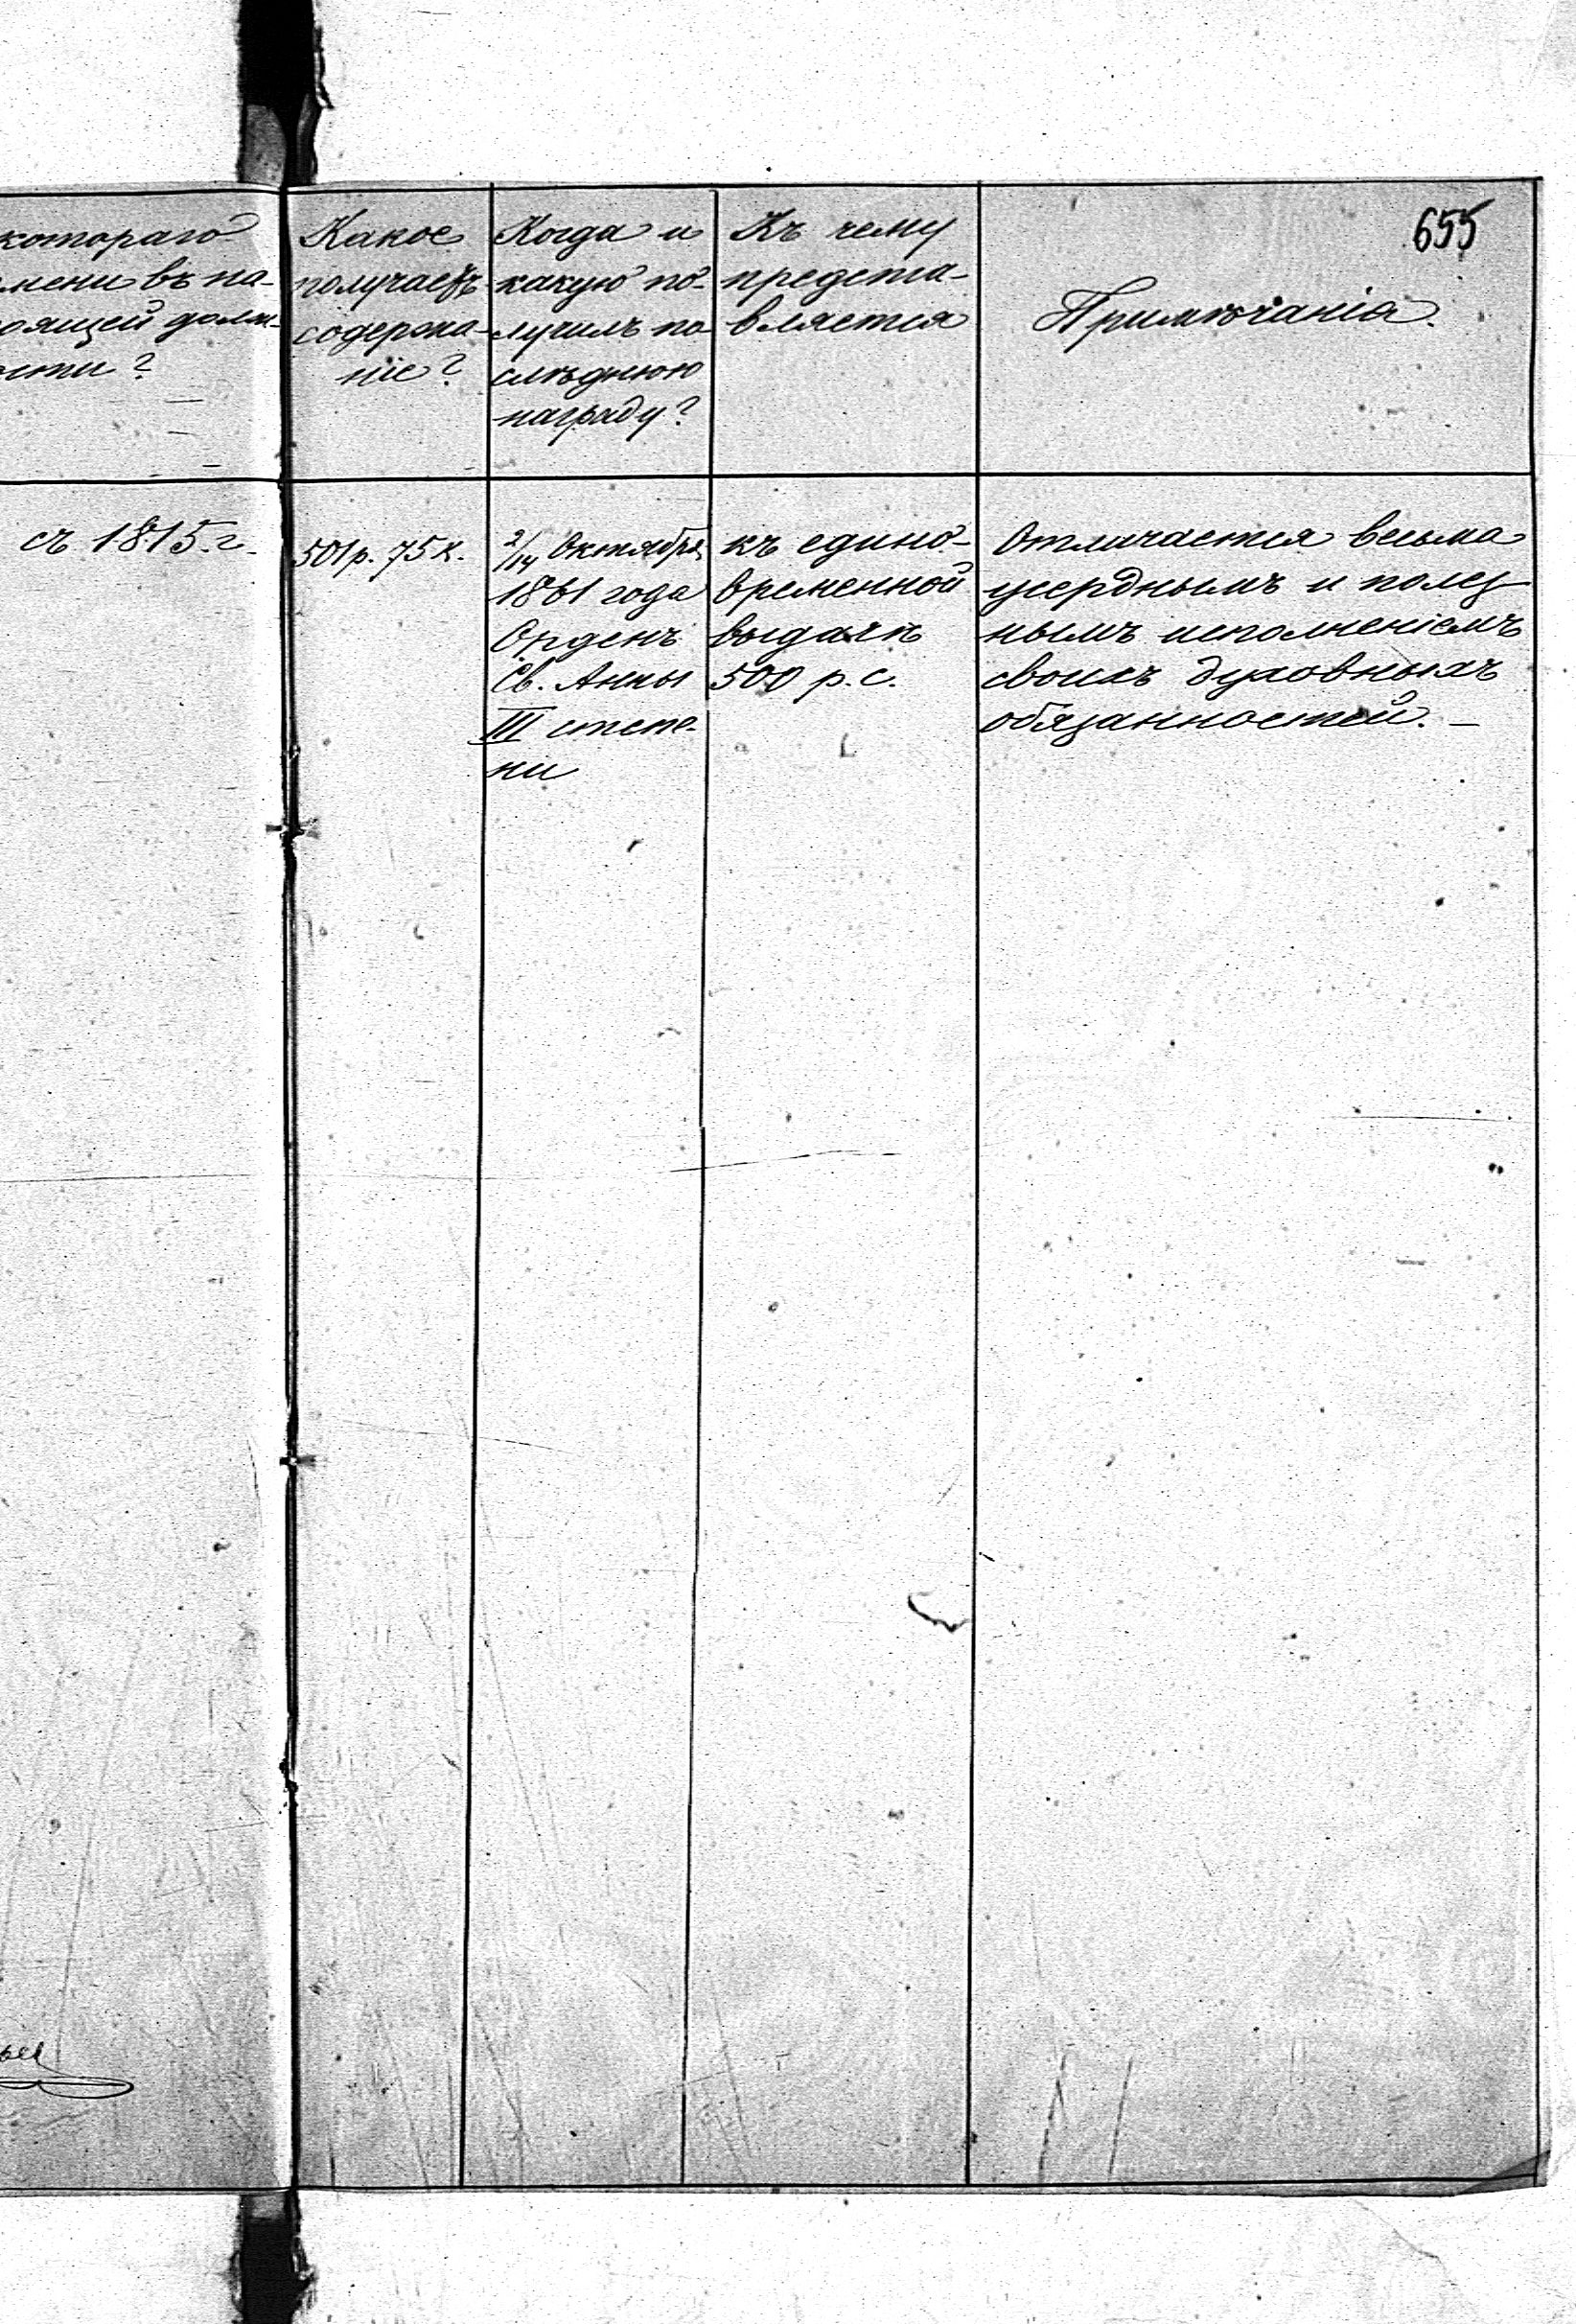 655
котораго
мени въ на-
оящей долж-
ости?
Какое
получаетъ
содержа-
ніе?
Когда и
какую по-
лучилъ по-
слѣднюю
награду?
Къ чему
предста-
вляется
Примѣчанія.
съ 1815 г.
501 р. 75 к.
2/14 Октября
1861 года
Орденъ
Св. Анны
III степе-
ни
къ едино-
временной
выдачѣ
500 р. с.
Отличается весьма
усерднымъ и полез
нымъ исполненіемъ
своихъ духовныхъ
обязанностей. —